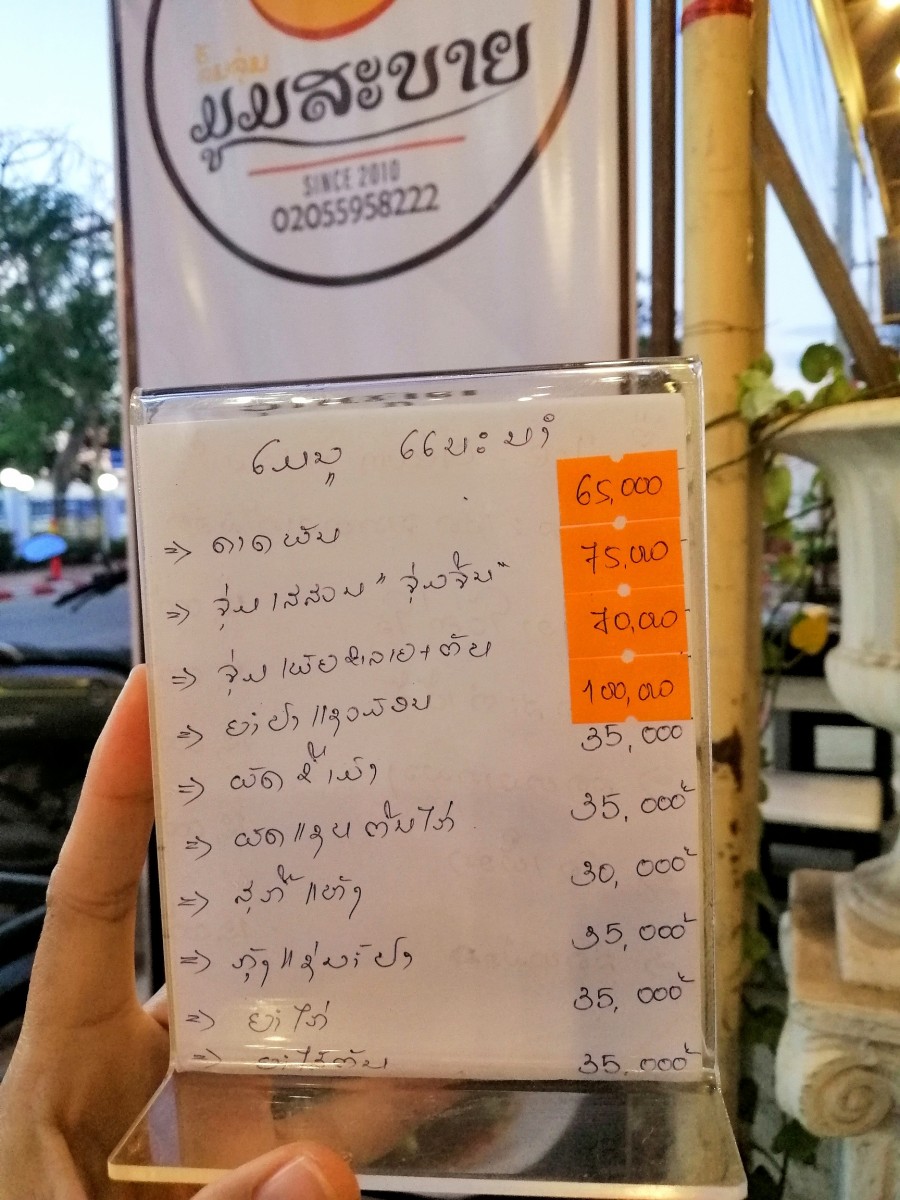 ຈີ້ມຈຸ່ມ
ມູມສະບາຍ
SINCE 2010
02055958222
ເມນູ ແນະນຳ
65,000
=> ດາດ ພັນ 75,000
=> ຈຸ່ມ ເສສວນ " ຈຸ່ມຈີ້ນ" 70,000
=> ຈຸ່ມ + ຕັບ 100,000
=> ຍຳ ປາ 35,000
=> ຜັດ ຂີ້ເມົາ 35,000
=> ຜັດ ຕັບໄກ່ 30,000
=> ສຸກີ້ ແຫ້ງ 35,000
=> ກຸ້ງແຊ່ນ້ຳປາ 35,000
=> ຍຳ ໄກ່
=> ຍຳ 35,000